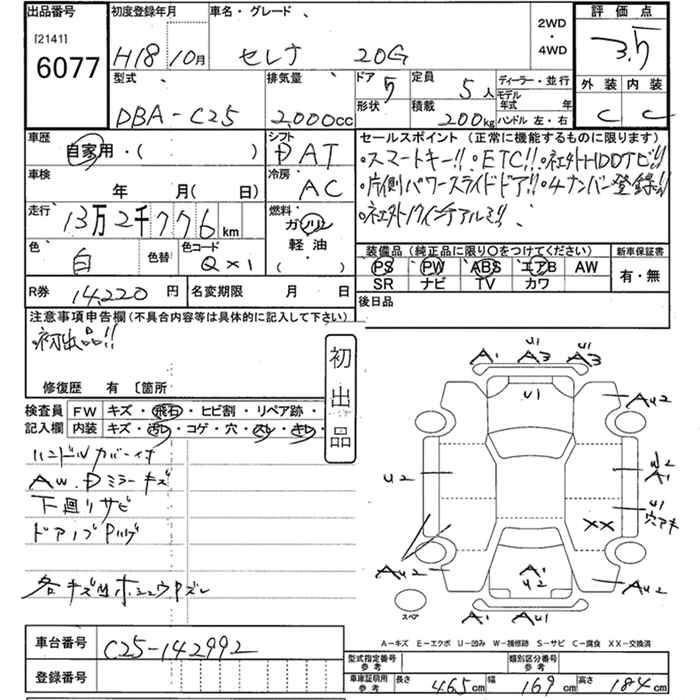 出品番号
[2141]
6077
初度登録年月
H18 10月
車名・グレード
セレナ 20G
2WD
・
4WD
評価点
3.5
型式
DBA-C25
排気量
2,000cc
ドア
5
定員
5人
ディーラー・並行
モデル
年式 年
形状
積載
200kg
ハンドル 左・右
外装 内装
C C
車歴
自家用・( )
シフト
DAT
車検
年 月( 日)
冷房
AC
走行
13万2千776km
燃料
ガソリン
軽油
( )
色
白
色替
色コード
QX1
セールスポイント (正常に機能するものに限ります)
・スマートキー!! ・ETC!! ・社外HDDナビ!!
・片側パワースライドドア!! ・4ナンバー登録!!
・社外17インチアルミ!!
装備品 (純正品に限り○をつけてください)
PS PW ABS エアB AW
SR ナビ TV カワ
新車保証書
有・無
R券 14,220円
名変期限 月 日
後日品
注意事項申告欄 (不具合内容等は具体的に記入して下さい)
・初出品!!
修復歴 有 〔箇所
初出品
検査員
記入欄
FW キズ・飛石・ヒビ割・リペア跡・
内装 キズ・汚レ・コゲ・穴・スレ・キレ・
ハンドルカバー付
AW.Dミラーキズ
下廻りサビ
ドアノブPハゲ
各キズ凹ホシュウPズレ
A1 U1 A3 U1 A3
U1
AU2
U2
U2 A1
U1 穴アキ
XX
AU2
A1
U2
AU2
A1 AU1
スペア
A-キズ E-エクボ U-凹み W-補修跡 S-サビ C-腐食 XX-交換済
車台番号
C25-142992
登録番号
型式指定番号
参考
類別区分番号
参考
車庫証明用
参考
長さ 465cm 幅 169cm 高さ 184cm